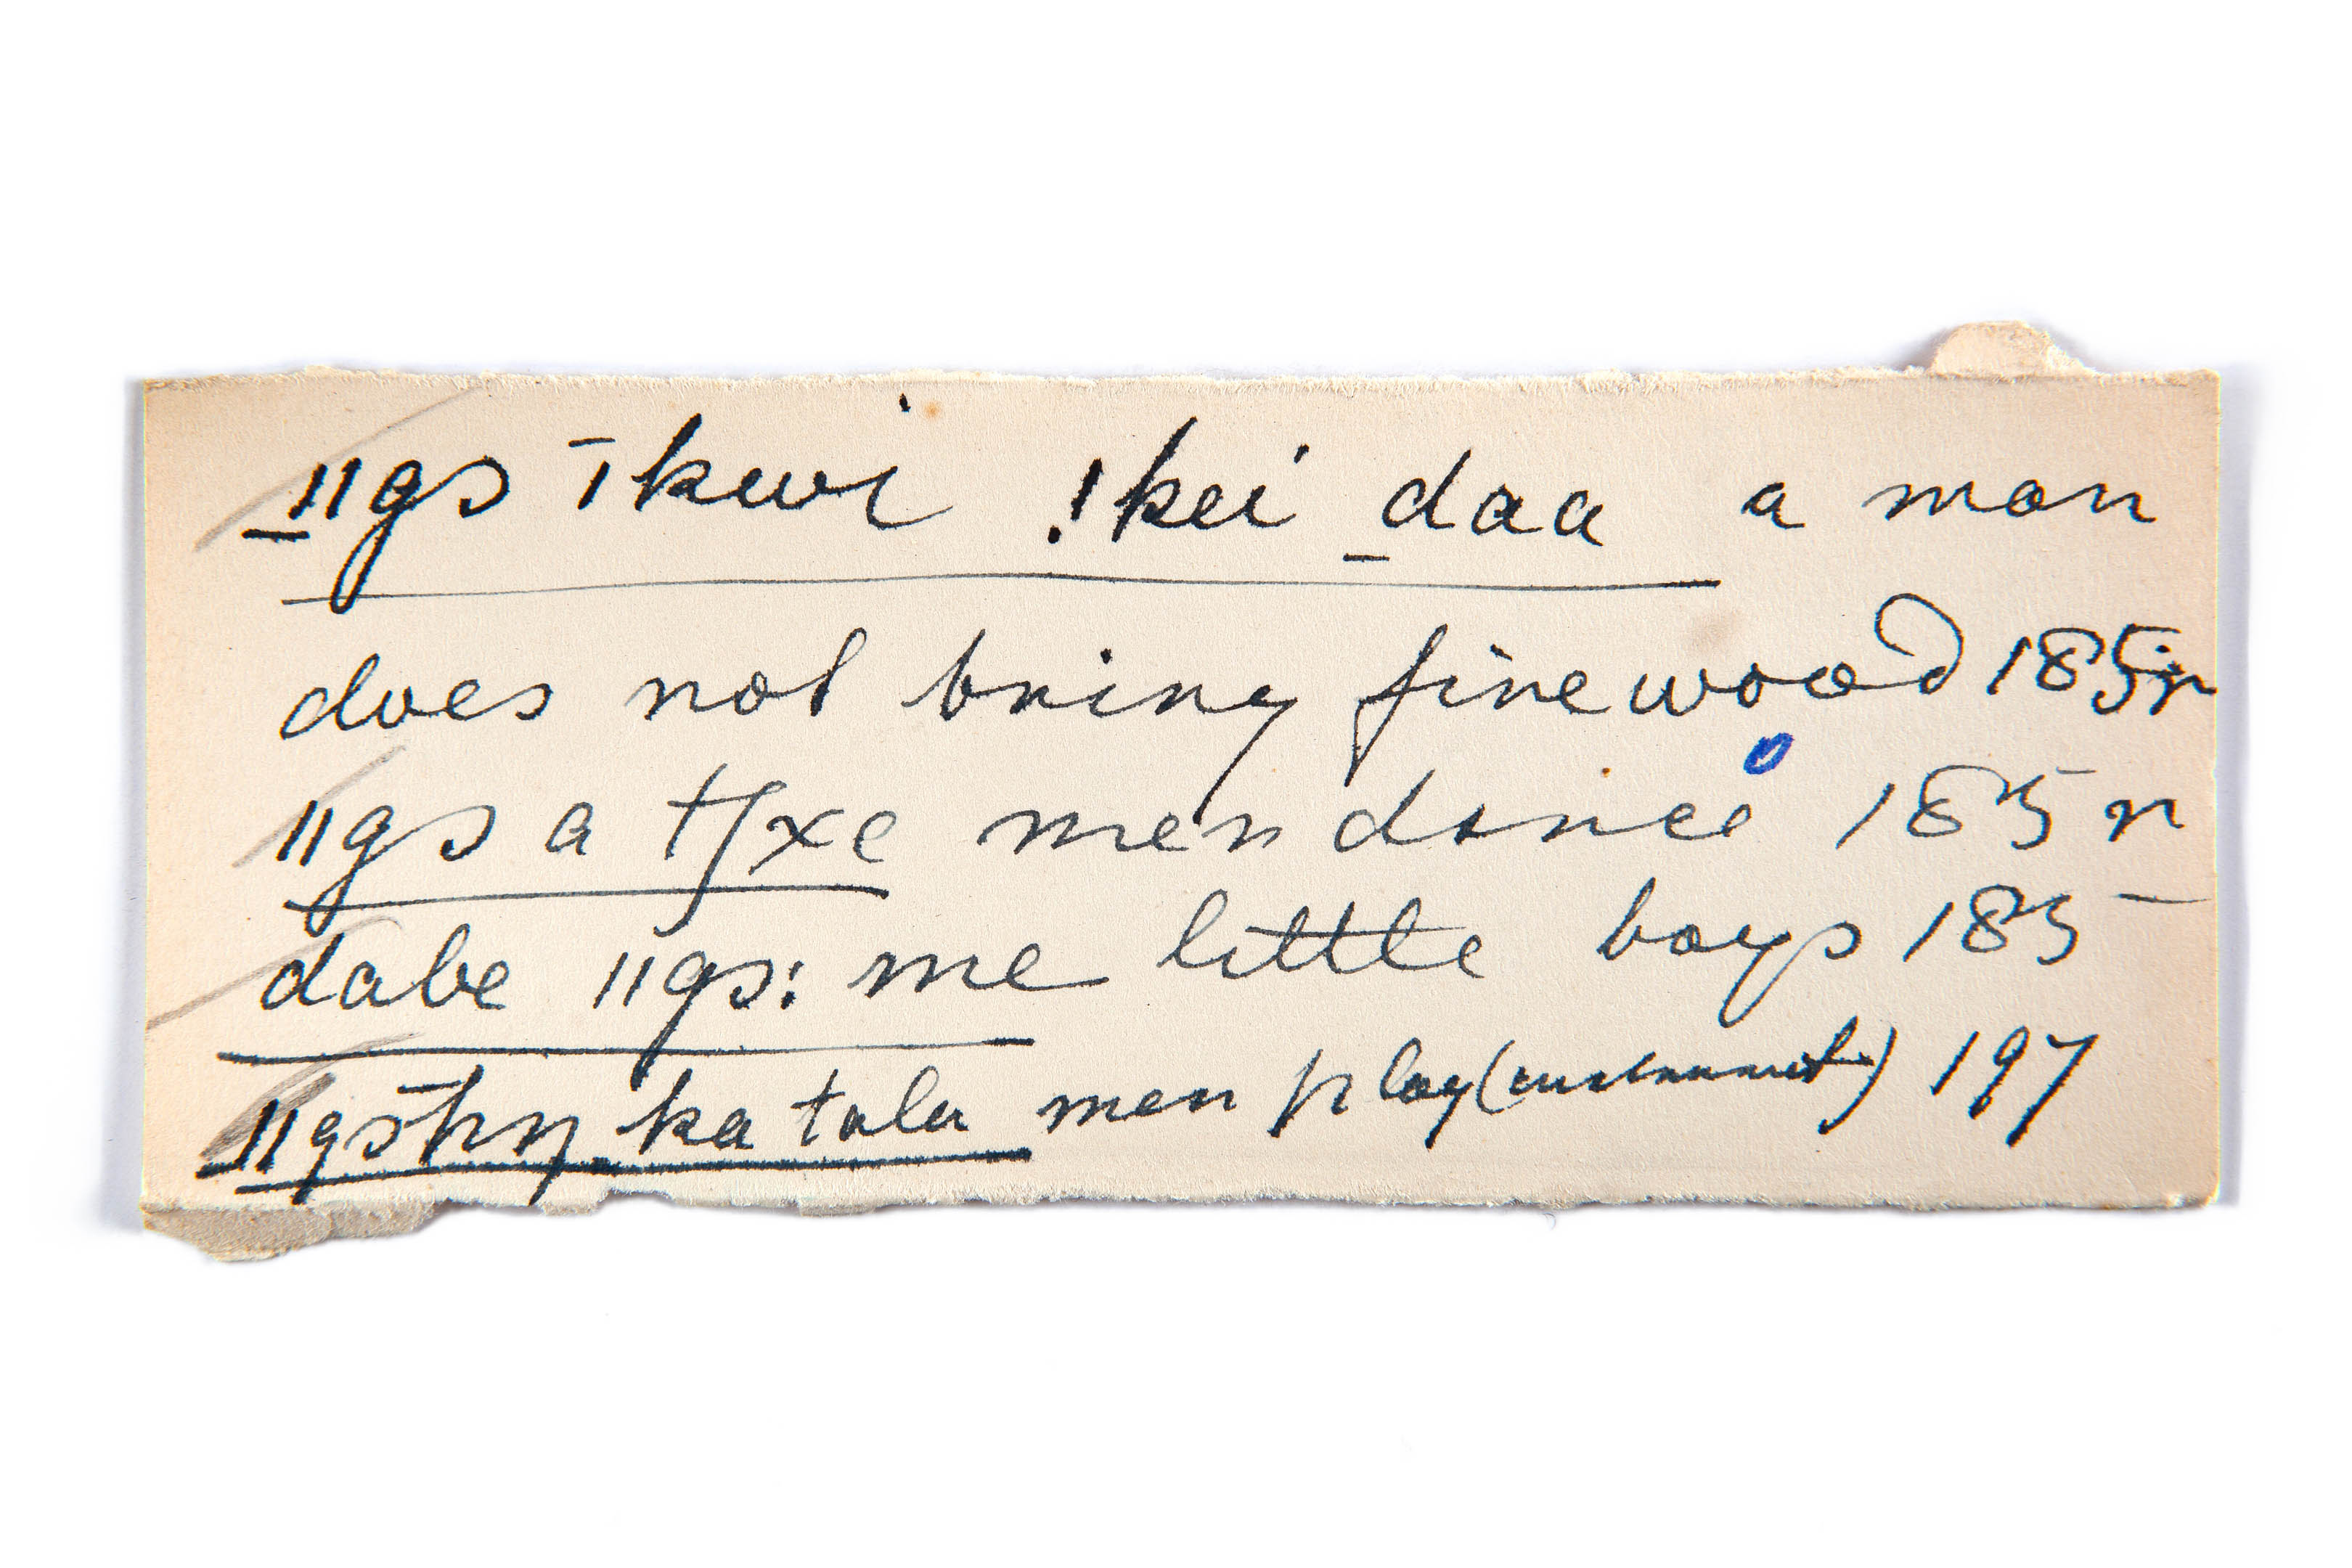 ǁgɔ ˉıkwi !kei daa a man
does not bring firewood 185r
ǁgɔ a tʃxe men dance 185r
dabe ǁgɔ: me little boys 185
ka tola men play (instrument) 197